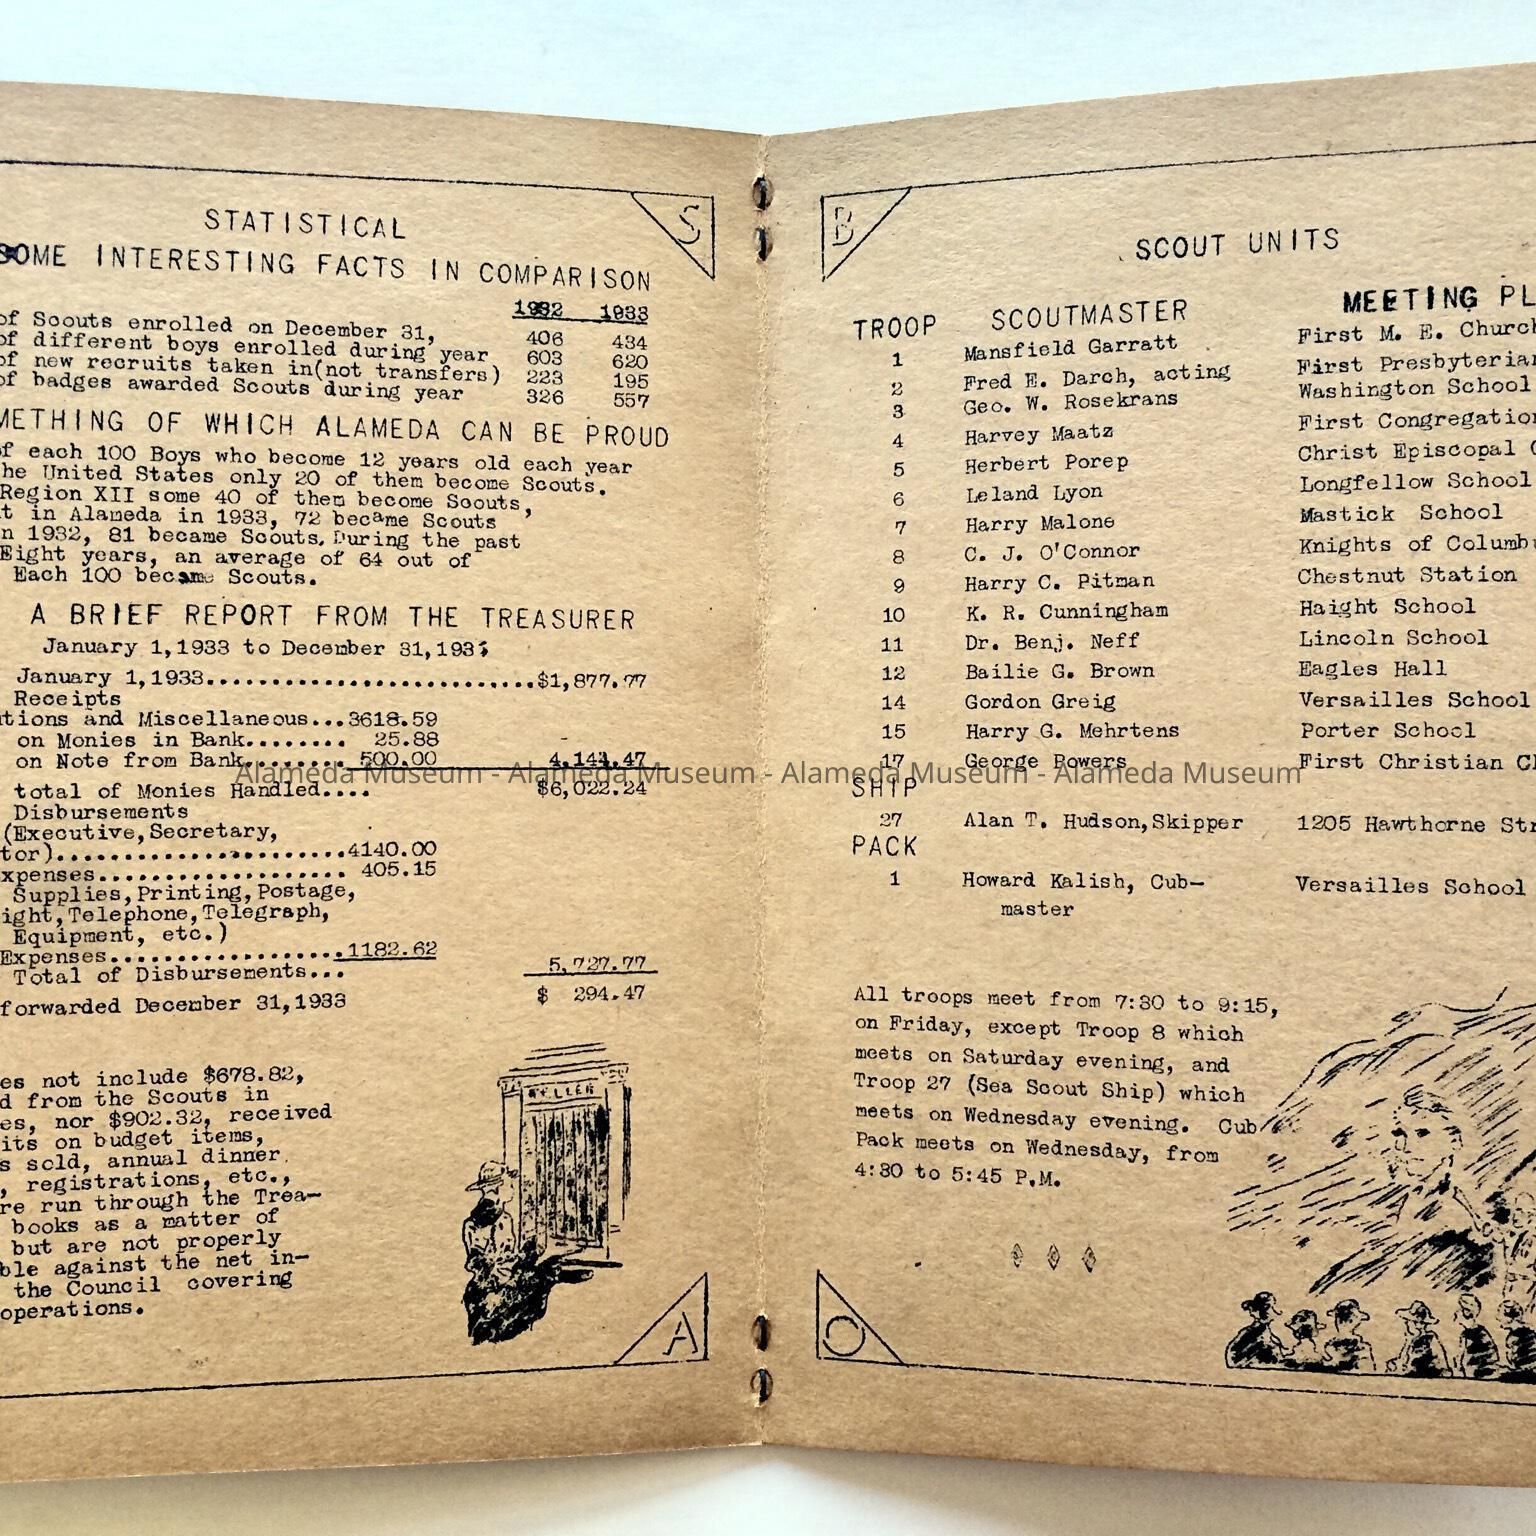 STATISTICAL
SOME INTERESTING FACTS IN COMPARISON
1932 1933
of Scouts enrolled on December 31, 406 434
of different boys enrolled during year 603 620
of new recruits taken in(not transfers) 223 195
of badges awarded Scouts during year 326 557
METHING OF WHICH ALAMEDA CAN BE PROUD
f each 100 Boys who become 12 years old each year
he United States only 20 of them become Scouts.
Region XII some 40 of them become Scouts,
t in Alameda in 1933, 72 became Scouts
n 1932, 81 became Scouts. During the past
Eight years, an average of 64 out of
Each 100 became Scouts.
A BRIEF REPORT FROM THE TREASURER
January 1,1933 to December 31,1933
January 1,1933..........................$1,877.77
Receipts
tions and Miscellaneous...3618.59
on Monies in Bank........ 25.88
on Note from Bank........ 500.00 4,144.47
total of Monies Handled.... $6,022.24
Disbursements
(Executive,Secretary,
tor).......................4140.00
xpenses................... 405.15
Supplies,Printing,Postage,
ight,Telephone,Telegraph,
Equipment, etc.)
Expenses...................1182.62
Total of Disbursements... 5,727.77
forwarded December 31,1933 $ 294.47
es not include $678.82,
d from the Scouts in
es, nor $902.32, received
its on budget items,
s sold, annual dinner,
, registrations, etc.,
re run through the Trea-
books as a matter of
but are not properly
ble against the net in-
the Council covering
operations.
S
A
B
SCOUT UNITS
TROOP SCOUTMASTER MEETING PL
1 Mansfield Garratt First M. E. Church
2 Fred E. Darch, acting First Presbyterian
3 Geo. W. Rosekrans Washington School
4 Harvey Maatz First Congregation
5 Herbert Porep Christ Episcopal C
6 Leland Lyon Longfellow School
7 Harry Malone Mastick School
8 C. J. O'Connor Knights of Columbu
9 Harry C. Pitman Chestnut Station
10 K. R. Cunningham Haight School
11 Dr. Benj. Neff Lincoln School
12 Bailie G. Brown Eagles Hall
14 Gordon Greig Versailles School
15 Harry G. Mehrtens Porter School
17 George Powers First Christian Ch
SHIP
27 Alan T. Hudson,Skipper 1205 Hawthorne Str
PACK
1 Howard Kalish, Cub- Versailles School
master
All troops meet from 7:30 to 9:15,
on Friday, except Troop 8 which
meets on Saturday evening, and
Troop 27 (Sea Scout Ship) which
meets on Wednesday evening. Cub
Pack meets on Wednesday, from
4:30 to 5:45 P.M.
O
Alameda Museum - Alameda Museum - Alameda Museum - Alameda Museum